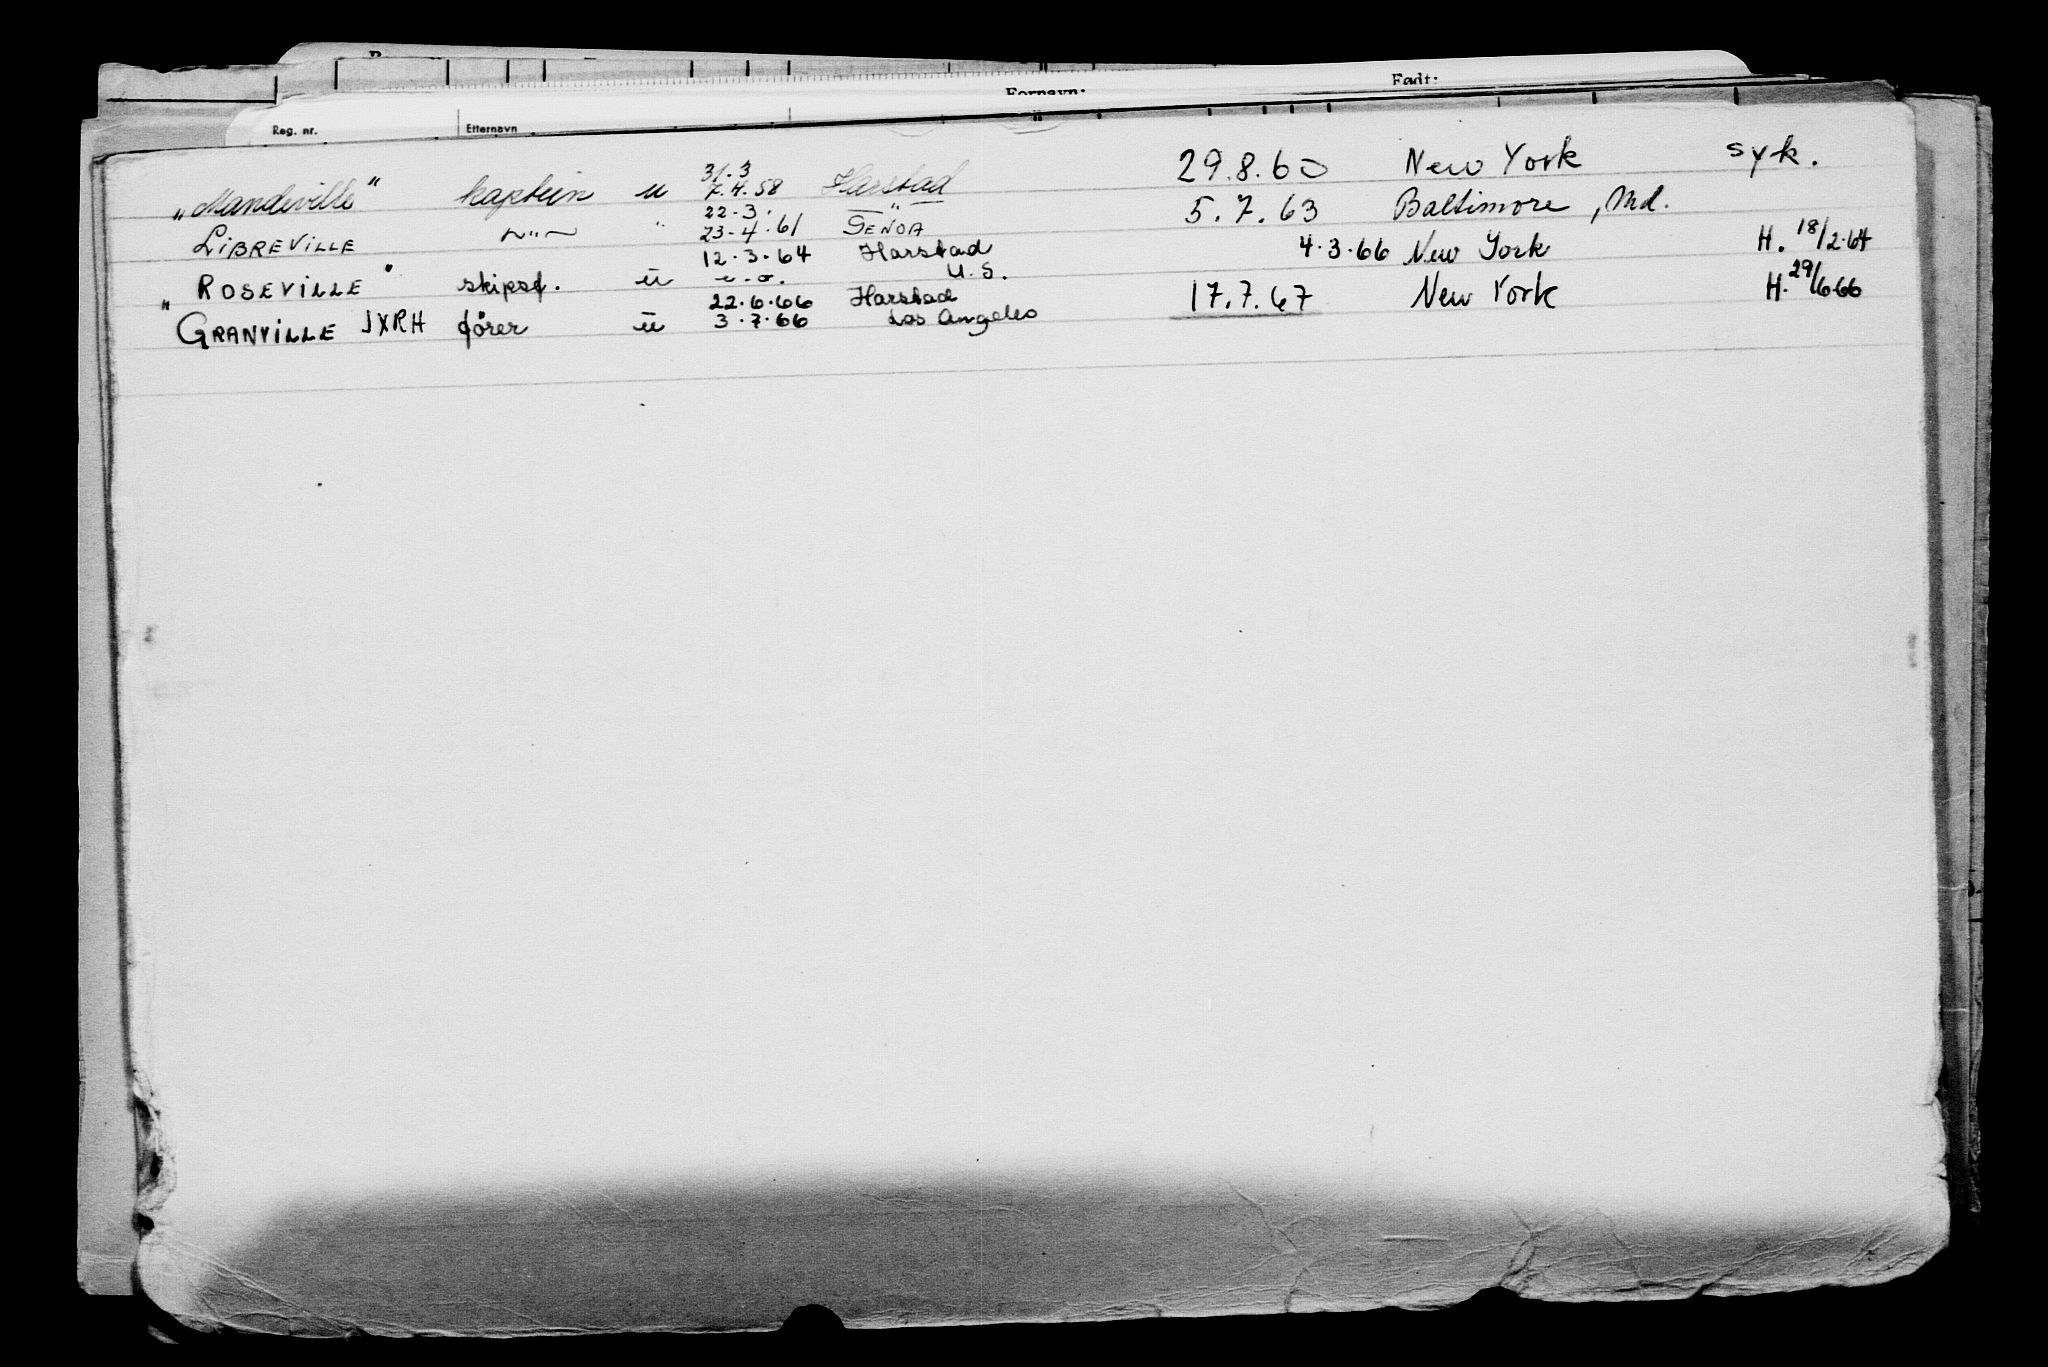 Fornavn: Født:
Reg. nr. Etternavn
„Mandeville" kaptein u 31.3 7.4.58 Harstad 29.8.60 New York syk.
LIBREVILLE ~"~ " 22-3. 23-4.61 " GENOA 5.7.63 Baltimore, Md.
„ROSEVILLE" skipsf. u 12.3.64 Harstad U.S. 4.3.66 New York H. 18/2.64
GRANVILLE JXRH fører u 22.6.66 Harstad 3.7.66 Los Angeles 17.7.67 New York H. 29/6.66